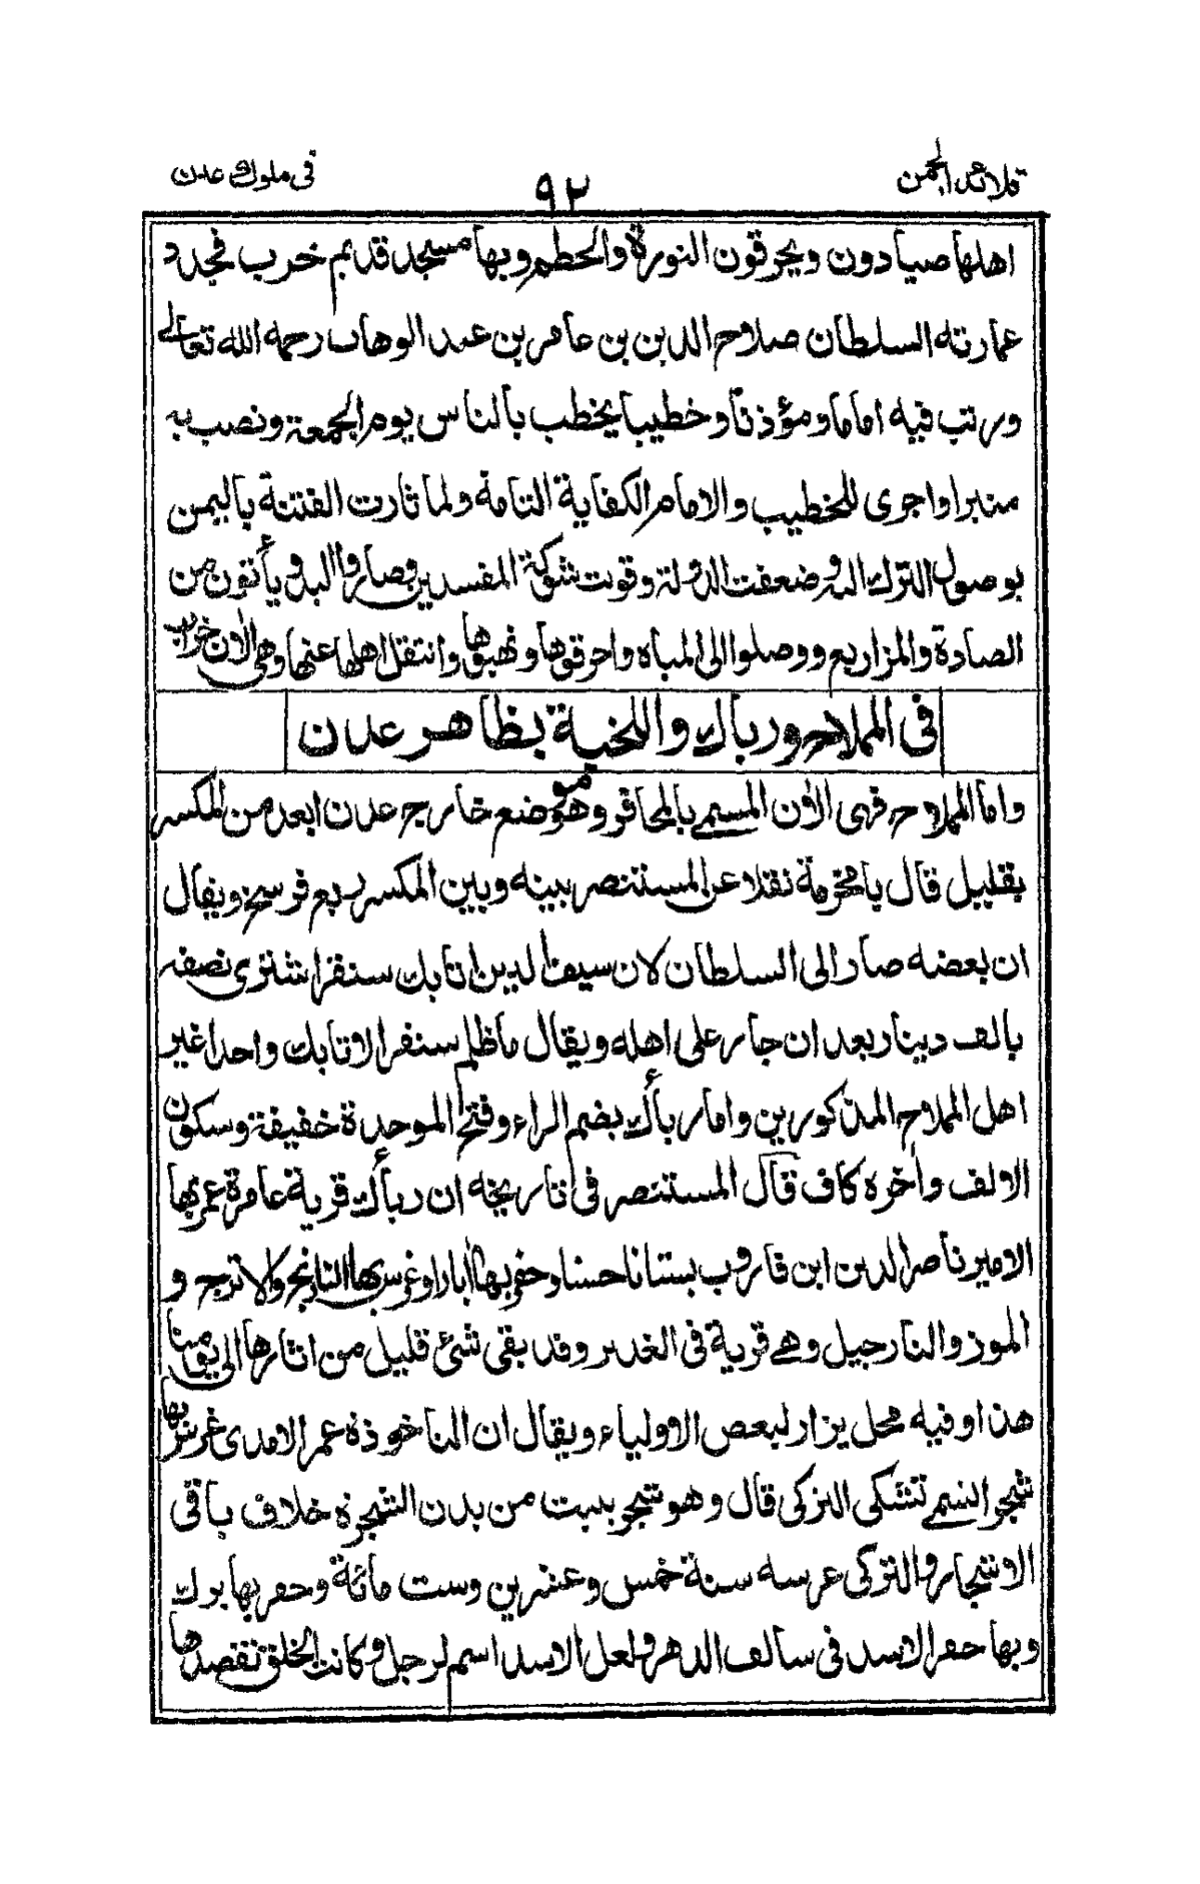 قلائد الجمن
٩٢
في ملوك عدن
اهلها صيادون ويحرقون النورة والحطم وبها مسجد قديم خرب فجدد
عمارته السلطان صلاح الدين بن عامر بن عبد الوهاب رحمه الله تعالى
ورتب فيه اماما ومؤذنا وخطيبا يخطب بالناس يوم الجمعة ونصب به
منبرا واجرى للخطيب والامام الكفاية التامة ولما ثارت الفتنة باليمن
بوصول الترك اليه وضعفت الدولة وقوت شوكة المفسدين وصاروا البدو يأتون من
الصادة والمزاريع ووصلوا الى المباه واحرقوها ونهبوها وانتقل اهلها عنها وهي الان خراب
في المملاح ورباك واللخبة بظاهر عدن
واما المملاح فهى الان المسمى بالمحاقر وهو موضع خارج عدن ابعد من المكسر
بقليل قال بامخرمة نقلا عن المستنصر بينه وبين المكسر ربع فرسخ ويقال
ان بعضه صار الى السلطان لان سيف الدين اتابك سنقر اشترى نصفه
بالف دينار بعد ان جار على اهله ويقال ما ظلم سنقر الاتابك واحدا غير
اهل المملاح المذكورين واما رباك بضم الراء وفتح الموحدة خفيفة وسكون
الالف وآخره كاف قال المستنصر في تاريخه ان رباك قرية عامرة عمر بها
الامير ناصر الدين ابن فاروب بستانا حسنا وحفر بها آبارا وغرس بها النارنج والاترج و
الموز والنارجيل وهي قرية في الغدير وقد بقى شئ قليل من اثارها الى يومنا
هذا وفيه محل يزار لبعض الاولياء ويقال ان الناخوذة عمر الامدى غرس بها
شجر النسمى تشكى التركى قال وهو شجر يبيت من بدن الشجرة خلاف باقى
الاشجار والتركى عرسه سنة خمس وعشرين وست مائة وحفر بها برك
وبها حفر الاسد في سالف الدهر ولعل الاسد اسم لرجل وكانت الخلق تقصدها